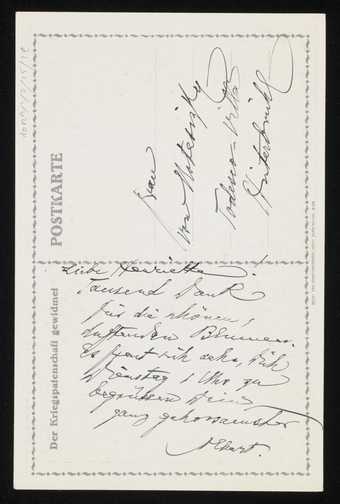 POSTKARTE
Der Kriegspatenschaft gewidmet
Frau
von Motesiczky
Todesco-Villa
Hinterbrühl
Liebe Henriette!
Tausend Dank
für die schönen,
duftenden Blumen.
Es freut sich sehr, Dich
Dienstag 1 Uhr zu
begrüssen Dein
ganz gehorsamster